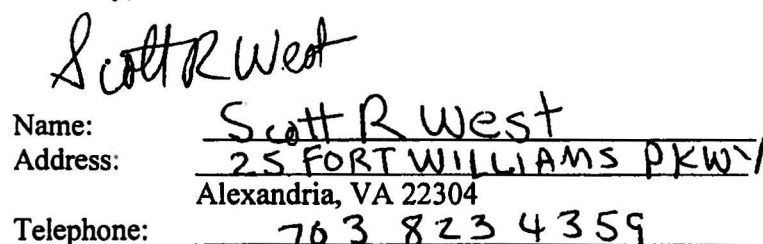 Scott R West
Name: Scott R West
Address: 25 FORT WILLIAMS PKWY
Alexandria, VA 22304
Telephone: 703 823 4359